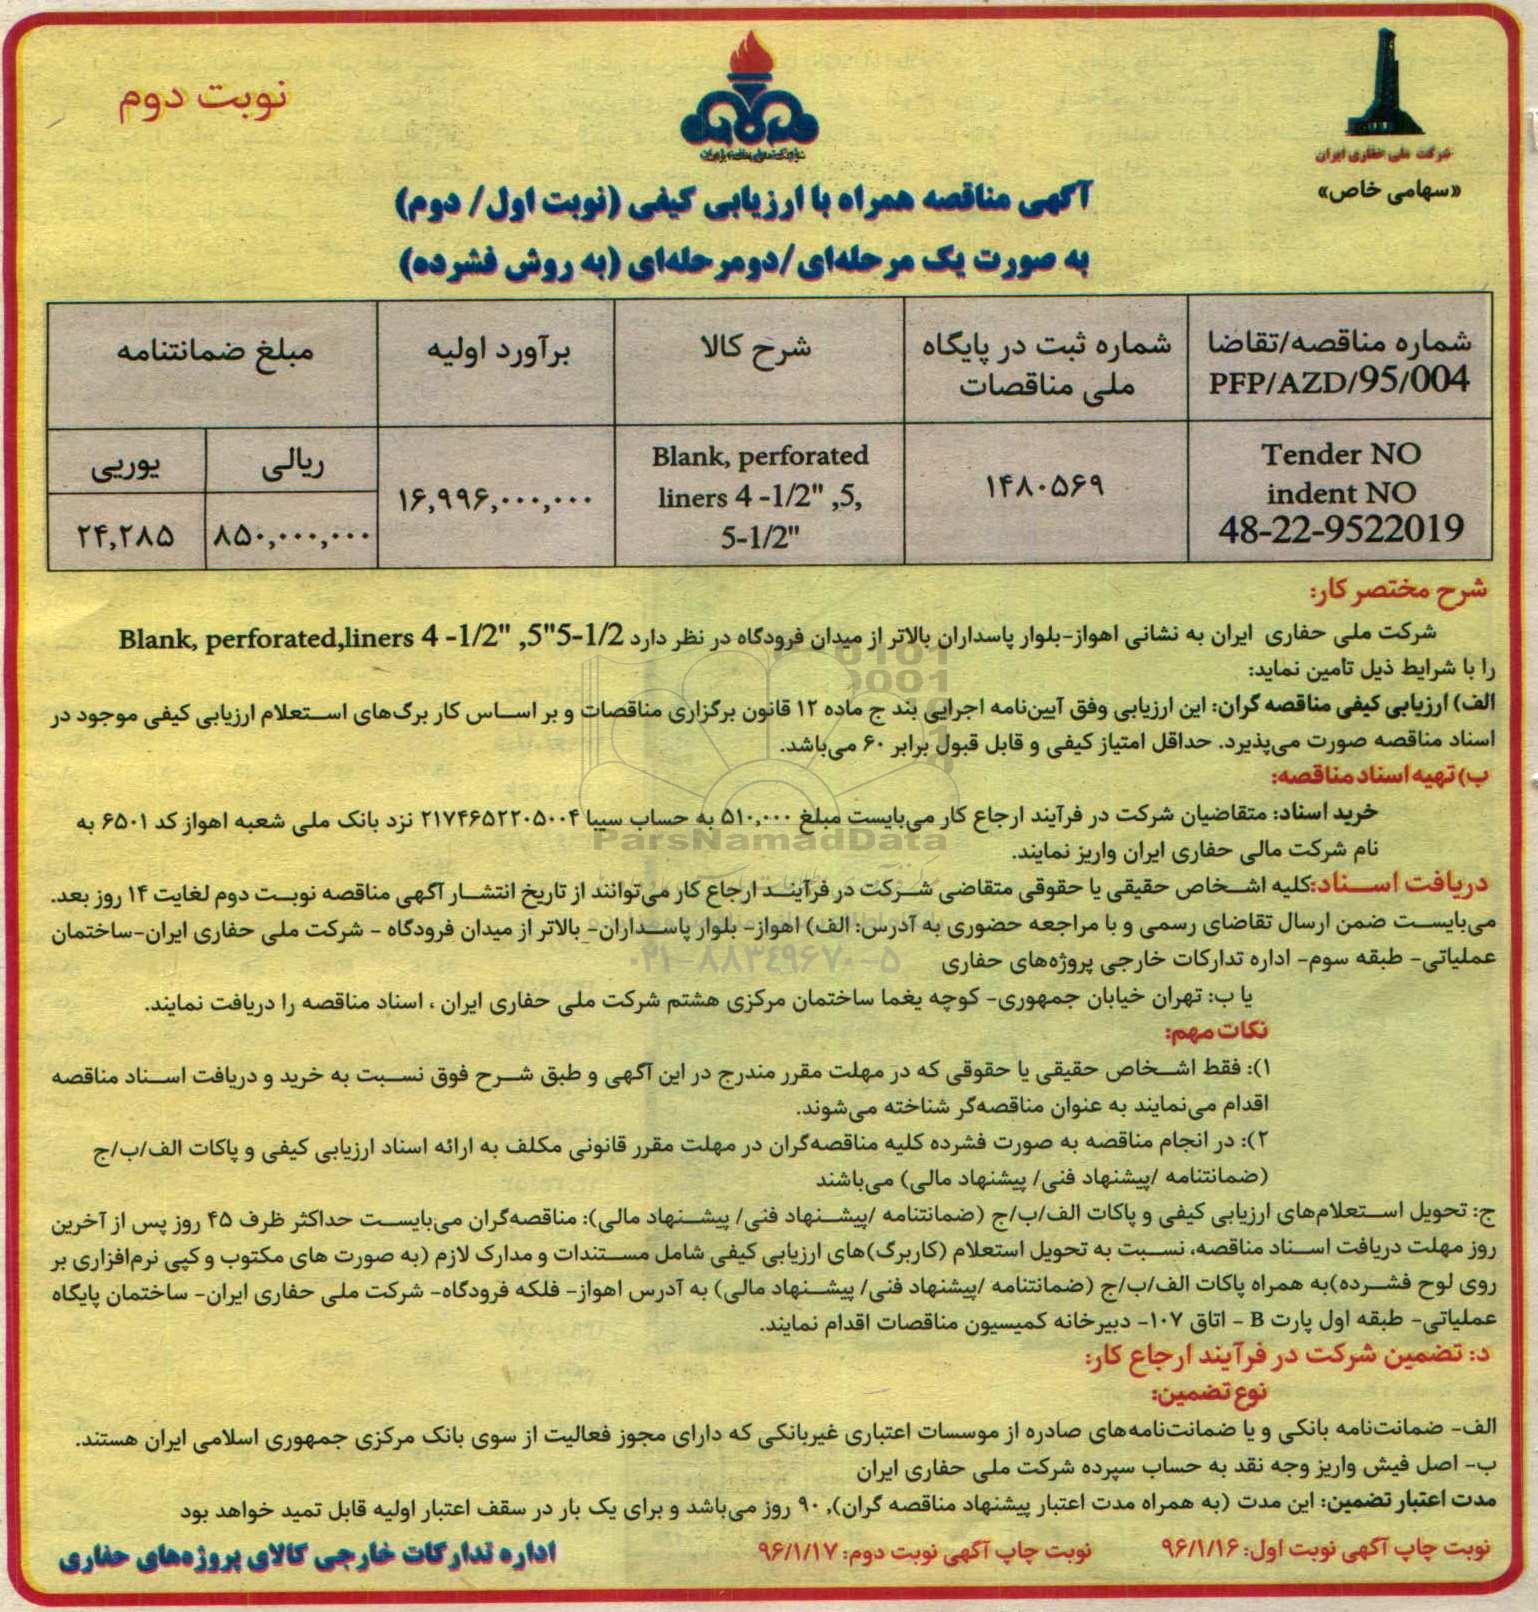 نوبت دوم
شرکت ملی حفاری ایران
«سهامی خاص»
آگهی مناقصه همراه با ارزیابی کیفی (نوبت اول/ دوم)
به صورت یک مرحله‌ای/دومرحله‌ای (به روش فشرده)
شماره مناقصه/تقاضا
PFP/AZD/95/004
شماره ثبت در پایگاه
ملی مناقصات
شرح کالا
برآورد اولیه
مبلغ ضمانتنامه
Tender NO
indent NO
48-22-9522019
۱۴۸۰۵۶۹
Blank, perforated
liners 4 -1/2" ,5,
5-1/2"
۱۶,۹۹۶,۰۰۰,۰۰۰
ریالی
یوریی
۸۵۰,۰۰۰,۰۰۰
۲۴,۲۸۵
شرح مختصر کار:
شرکت ملی حفاری ایران به نشانی اهواز-بلوار پاسداران بالاتر از میدان فرودگاه در نظر دارد Blank, perforated,liners 4 -1/2" ,5"5-1/2
را با شرایط ذیل تامین نماید:
الف) ارزیابی کیفی مناقصه گران: این ارزیابی وفق آیین‌نامه اجرایی بند ج ماده ۱۲ قانون برگزاری مناقصات و بر اساس کار برگ‌های استعلام ارزیابی کیفی موجود در
اسناد مناقصه صورت می‌پذیرد. حداقل امتیاز کیفی و قابل قبول برابر ۶۰ می‌باشد.
ب) تهیه اسناد مناقصه:
خرید اسناد: متقاضیان شرکت در فرآیند ارجاع کار می‌بایست مبلغ ۵۱۰,۰۰۰ به حساب سیبا ۲۱۷۴۶۵۲۲۰۵۰۰۴ نزد بانک ملی شعبه اهواز کد ۶۵۰۱ به
نام شرکت مالی حفاری ایران واریز نمایند.
ParsNamadData
دریافت اسناد:کلیه اشخاص حقیقی یا حقوقی متقاضی شرکت در فرآیند ارجاع کار می‌توانند از تاریخ انتشار آگهی مناقصه نوبت دوم لغایت ۱۴ روز بعد.
می‌بایست ضمن ارسال تقاضای رسمی و با مراجعه حضوری به آدرس: الف) اهواز- بلوار پاسداران- بالاتر از میدان فرودگاه - شرکت ملی حفاری ایران-ساختمان
عملیاتی- طبقه سوم- اداره تدارکات خارجی پروژه‌های حفاری
۰۲۱-۸۸۳۴۹۶۷۰-۵
یا ب: تهران خیابان جمهوری- کوچه یغما ساختمان مرکزی هشتم شرکت ملی حفاری ایران ، اسناد مناقصه را دریافت نمایند.
نکات مهم:
۱): فقط اشخاص حقیقی یا حقوقی که در مهلت مقرر مندرج در این آگهی و طبق شرح فوق نسبت به خرید و دریافت اسناد مناقصه
اقدام می‌نمایند به عنوان مناقصه‌گر شناخته می‌شوند.
۲): در انجام مناقصه به صورت فشرده کلیه مناقصه‌گران در مهلت مقرر قانونی مکلف به ارائه اسناد ارزیابی کیفی و پاکات الف/ب/ج
(ضمانتنامه /پیشنهاد فنی/ پیشنهاد مالی) می‌باشند
ج: تحویل استعلام‌های ارزیابی کیفی و پاکات الف/ب/ج (ضمانتنامه /پیشنهاد فنی/ پیشنهاد مالی): مناقصه‌گران می‌بایست حداکثر ظرف ۴۵ روز پس از آخرین
روز مهلت دریافت اسناد مناقصه، نسبت به تحویل استعلام (کاربرگ)های ارزیابی کیفی شامل مستندات و مدارک لازم (به صورت های مکتوب و کپی نرم‌افزاری بر
روی لوح فشرده)به همراه پاکات الف/ب/ج (ضمانتنامه /پیشنهاد فنی/ پیشنهاد مالی) به آدرس اهواز- فلکه فرودگاه- شرکت ملی حفاری ایران- ساختمان پایگاه
عملیاتی- طبقه اول پارت B - اتاق ۱۰۷- دبیرخانه کمیسیون مناقصات اقدام نمایند.
د: تضمین شرکت در فرآیند ارجاع کار:
نوع تضمین:
الف- ضمانت‌نامه بانکی و یا ضمانت‌نامه‌های صادره از موسسات اعتباری غیربانکی که دارای مجوز فعالیت از سوی بانک مرکزی جمهوری اسلامی ایران هستند.
ب- اصل فیش واریز وجه نقد به حساب سپرده شرکت ملی حفاری ایران
مدت اعتبار تضمین: این مدت (به همراه مدت اعتبار پیشنهاد مناقصه گران), ۹۰ روز می‌باشد و برای یک بار در سقف اعتبار اولیه قابل تمید خواهد بود
نوبت چاپ آگهی نوبت اول: ۹۶/۱/۱۶
نوبت چاپ آگهی نوبت دوم: ۹۶/۱/۱۷
اداره تدارکات خارجی کالای پروژه‌های حفاری